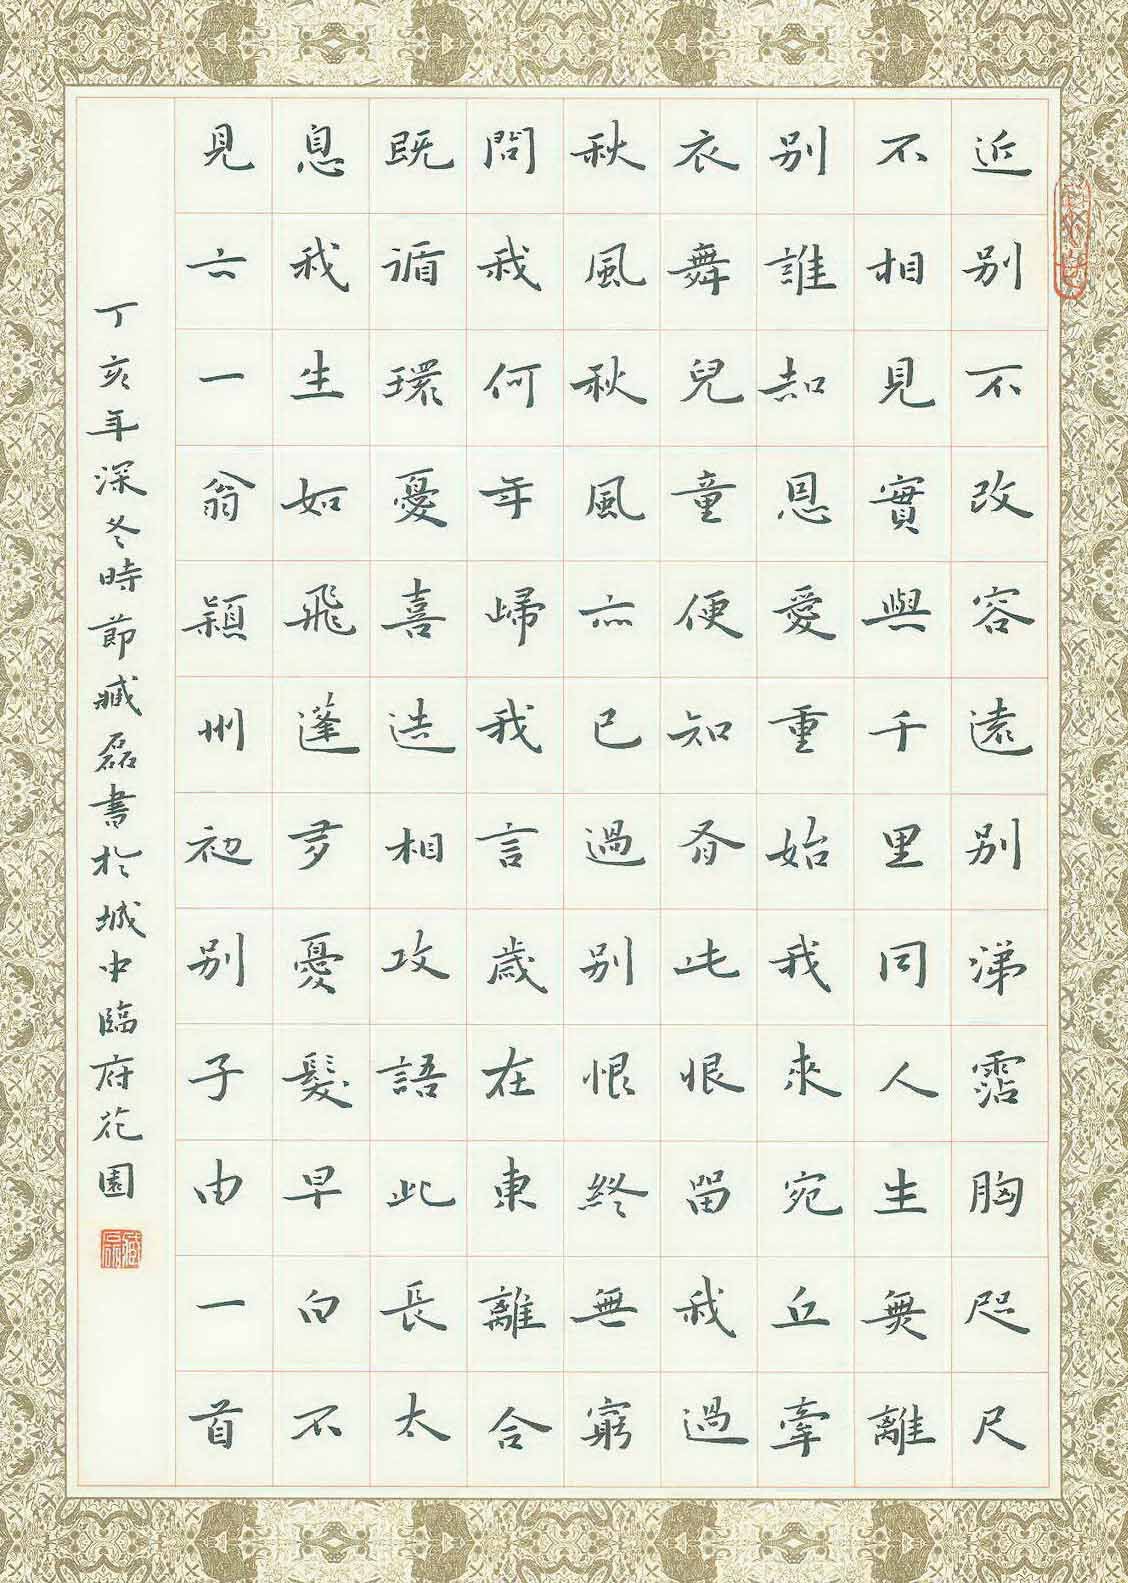 近别不改容遠别涕霑胸咫尺
不相見實與千里同人生無離
别誰知恩愛重始我來宛丘牽
衣舞兒童便知有此恨留我過
秋風秋風亦已過别恨終無窮
問我何年歸我言歲在東離合
既循環憂喜迭相攻語此長太
息我生如飛蓬多憂髮早白不
見六一翁潁州初别子由一首
丁亥年深冬時節臧磊書於城中臨府花園